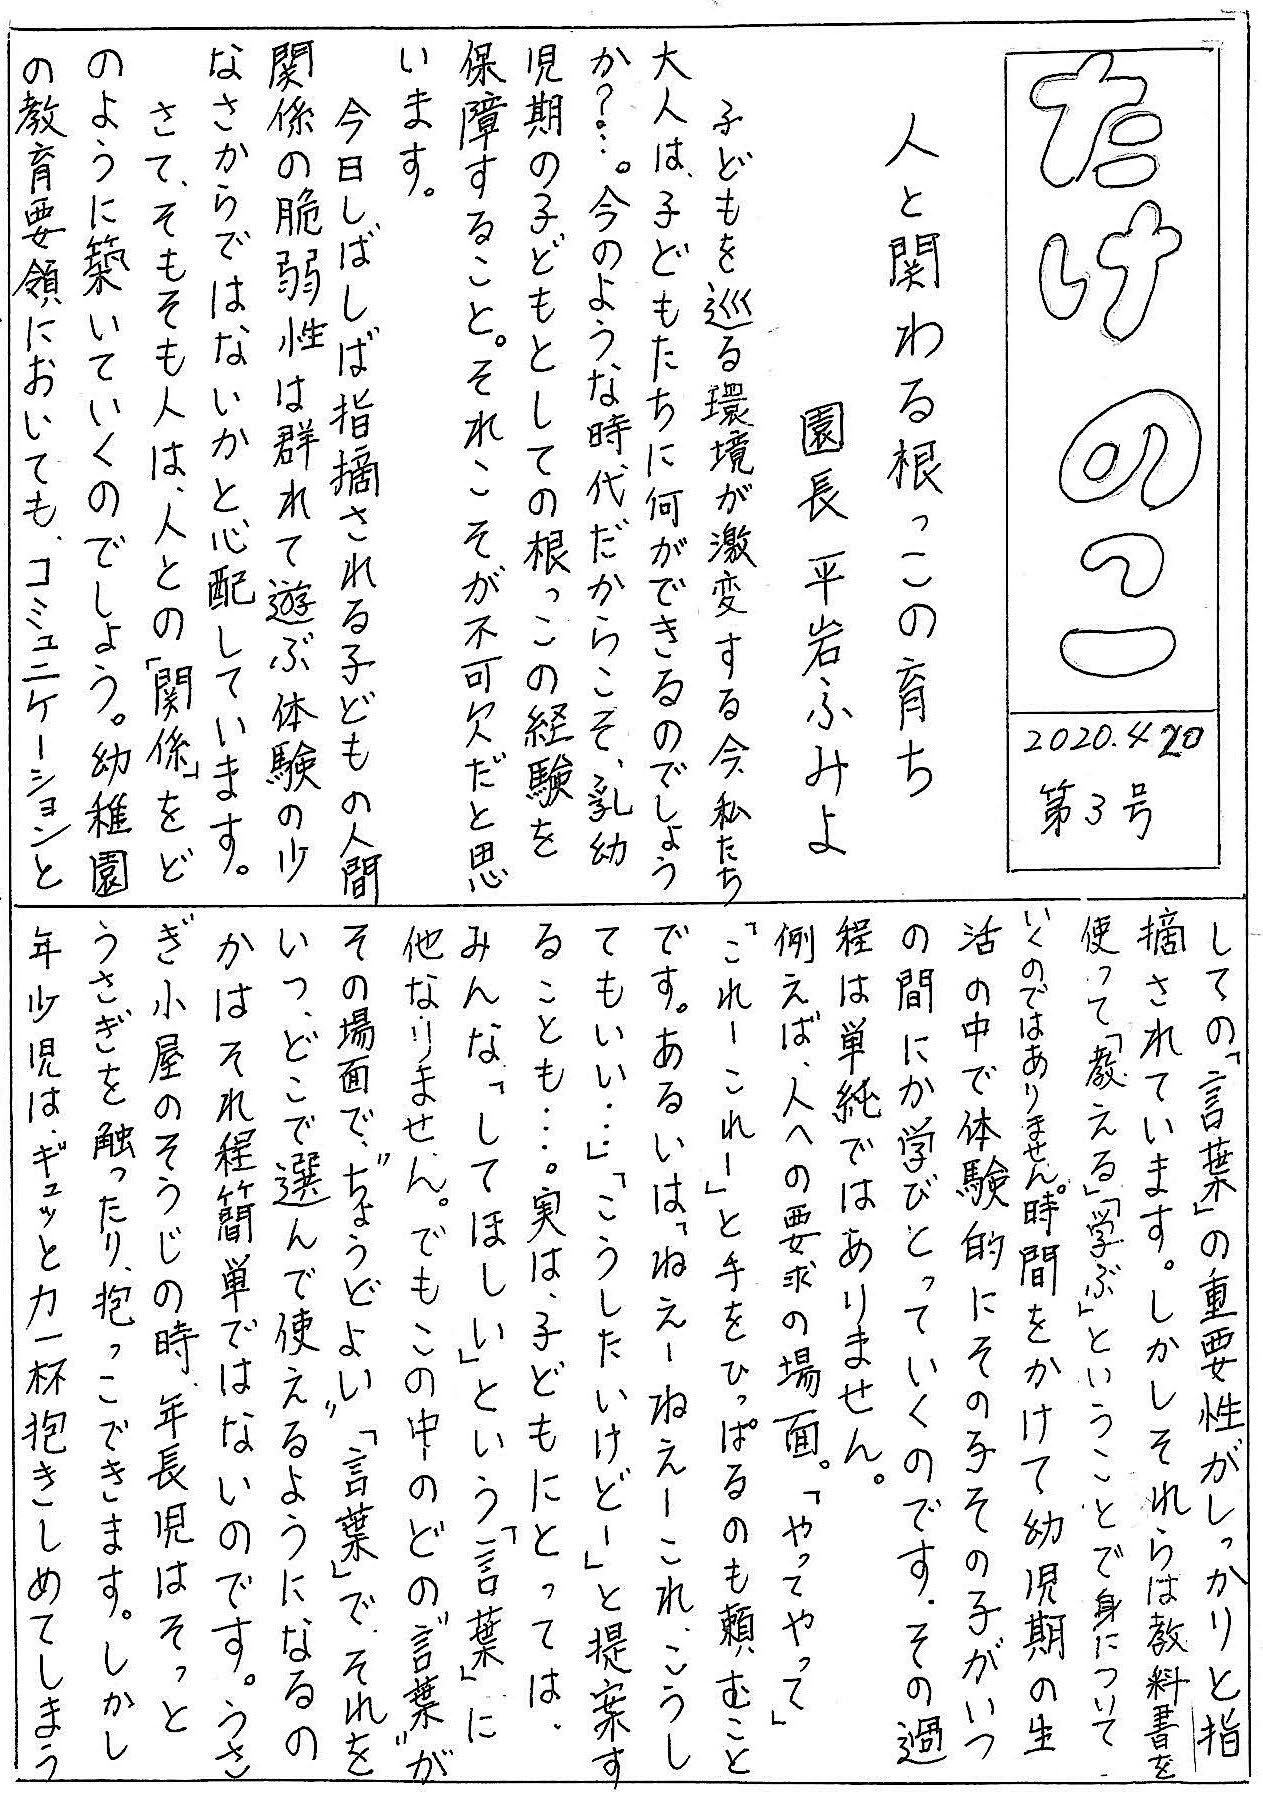 たけのこ
2020.4.20
第3号
人と関わる根っこの育ち
園長 平岩ふみよ
子どもを巡る環境が激変する今、私たち
大人は、子どもたちに何ができるのでしょう
か?…。今のような時代だからこそ、乳幼
児期の子どもとしての根っこの経験を
保障すること。それこそが不可欠だと思
います。
今日しばしば指摘される子どもの人間
関係の脆弱性は群れて遊ぶ体験の少
なさからではないかと心配しています。
さて、そもそも人は、人との「関係」をど
のように築いていくのでしょう。幼稚園
の教育要領においても、コミュニケーションと
しての「言葉」の重要性がしっかりと指
摘されています。しかしそれらは教科書を
使って「教える」「学ぶ」ということで身について
いくのではありません。時間をかけて幼児期の生
活の中で体験的にその子その子がいつ
の間にか学びとっていくのです。その過
程は単純ではありません。
例えば、人への要求の場面。「やってやって」
「これーこれー」と手をひっぱるのも頼むこと
です。あるいは「ねえーねえーこれ、こうし
てもいい…」「こうしたいけどー」と提案す
ることも…。実は、子どもにとっては、
みんな「してほしい」という「言葉」に
他なりません。でもこの中のどの“言葉”が
その場面で、“ちょうどよい”「言葉」で、それを
いつ、どこで選んで使えるようになるの
かはそれ程簡単ではないのです。うさ
ぎ小屋のそうじの時、年長児はそっと
うさぎを触ったり、抱っこできます。しかし
年少児は、ギュッと力一杯抱きしめてしまう